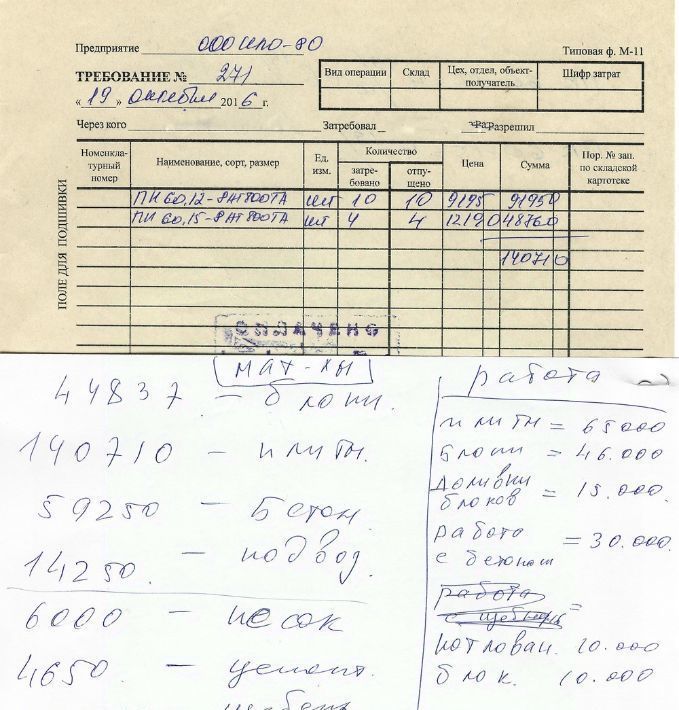 Предприятие ООО СПО-80
Типовая ф. М-11
ТРЕБОВАНИЕ № 271
Вид операции Склад Цех, отдел, объект-получатель Шифр затрат
« 19 » октября 2016 г.
Через кого Затребовал Разрешил
ПОЛЕ ДЛЯ ПОДШИВКИ
Номенкла-турный номер Наименование, сорт, размер Ед. изм. Количество Цена Сумма Пор. № зап. по складской картотеке
затре-бовано отпу-щено
ПК 60.12-8АТ800ТА шт 10 10 9195 91950
ПК 60.15-8АТ800ТА шт 4 4 12190 48760
140710
ОПЛАЧЕНО
мат-лы
44837 – блоки.
140710 – плиты.
59250 – Бетон.
14250. – подвод.
6000 – песок
4650. – цемент.
щебень
работа
плиты = 65000
блоки = 46.000
доливки
блоков = 15.000.
работа
с бетоном = 30.000.
работа
с щебнем =
котлован. 10.000
блок. 10.000